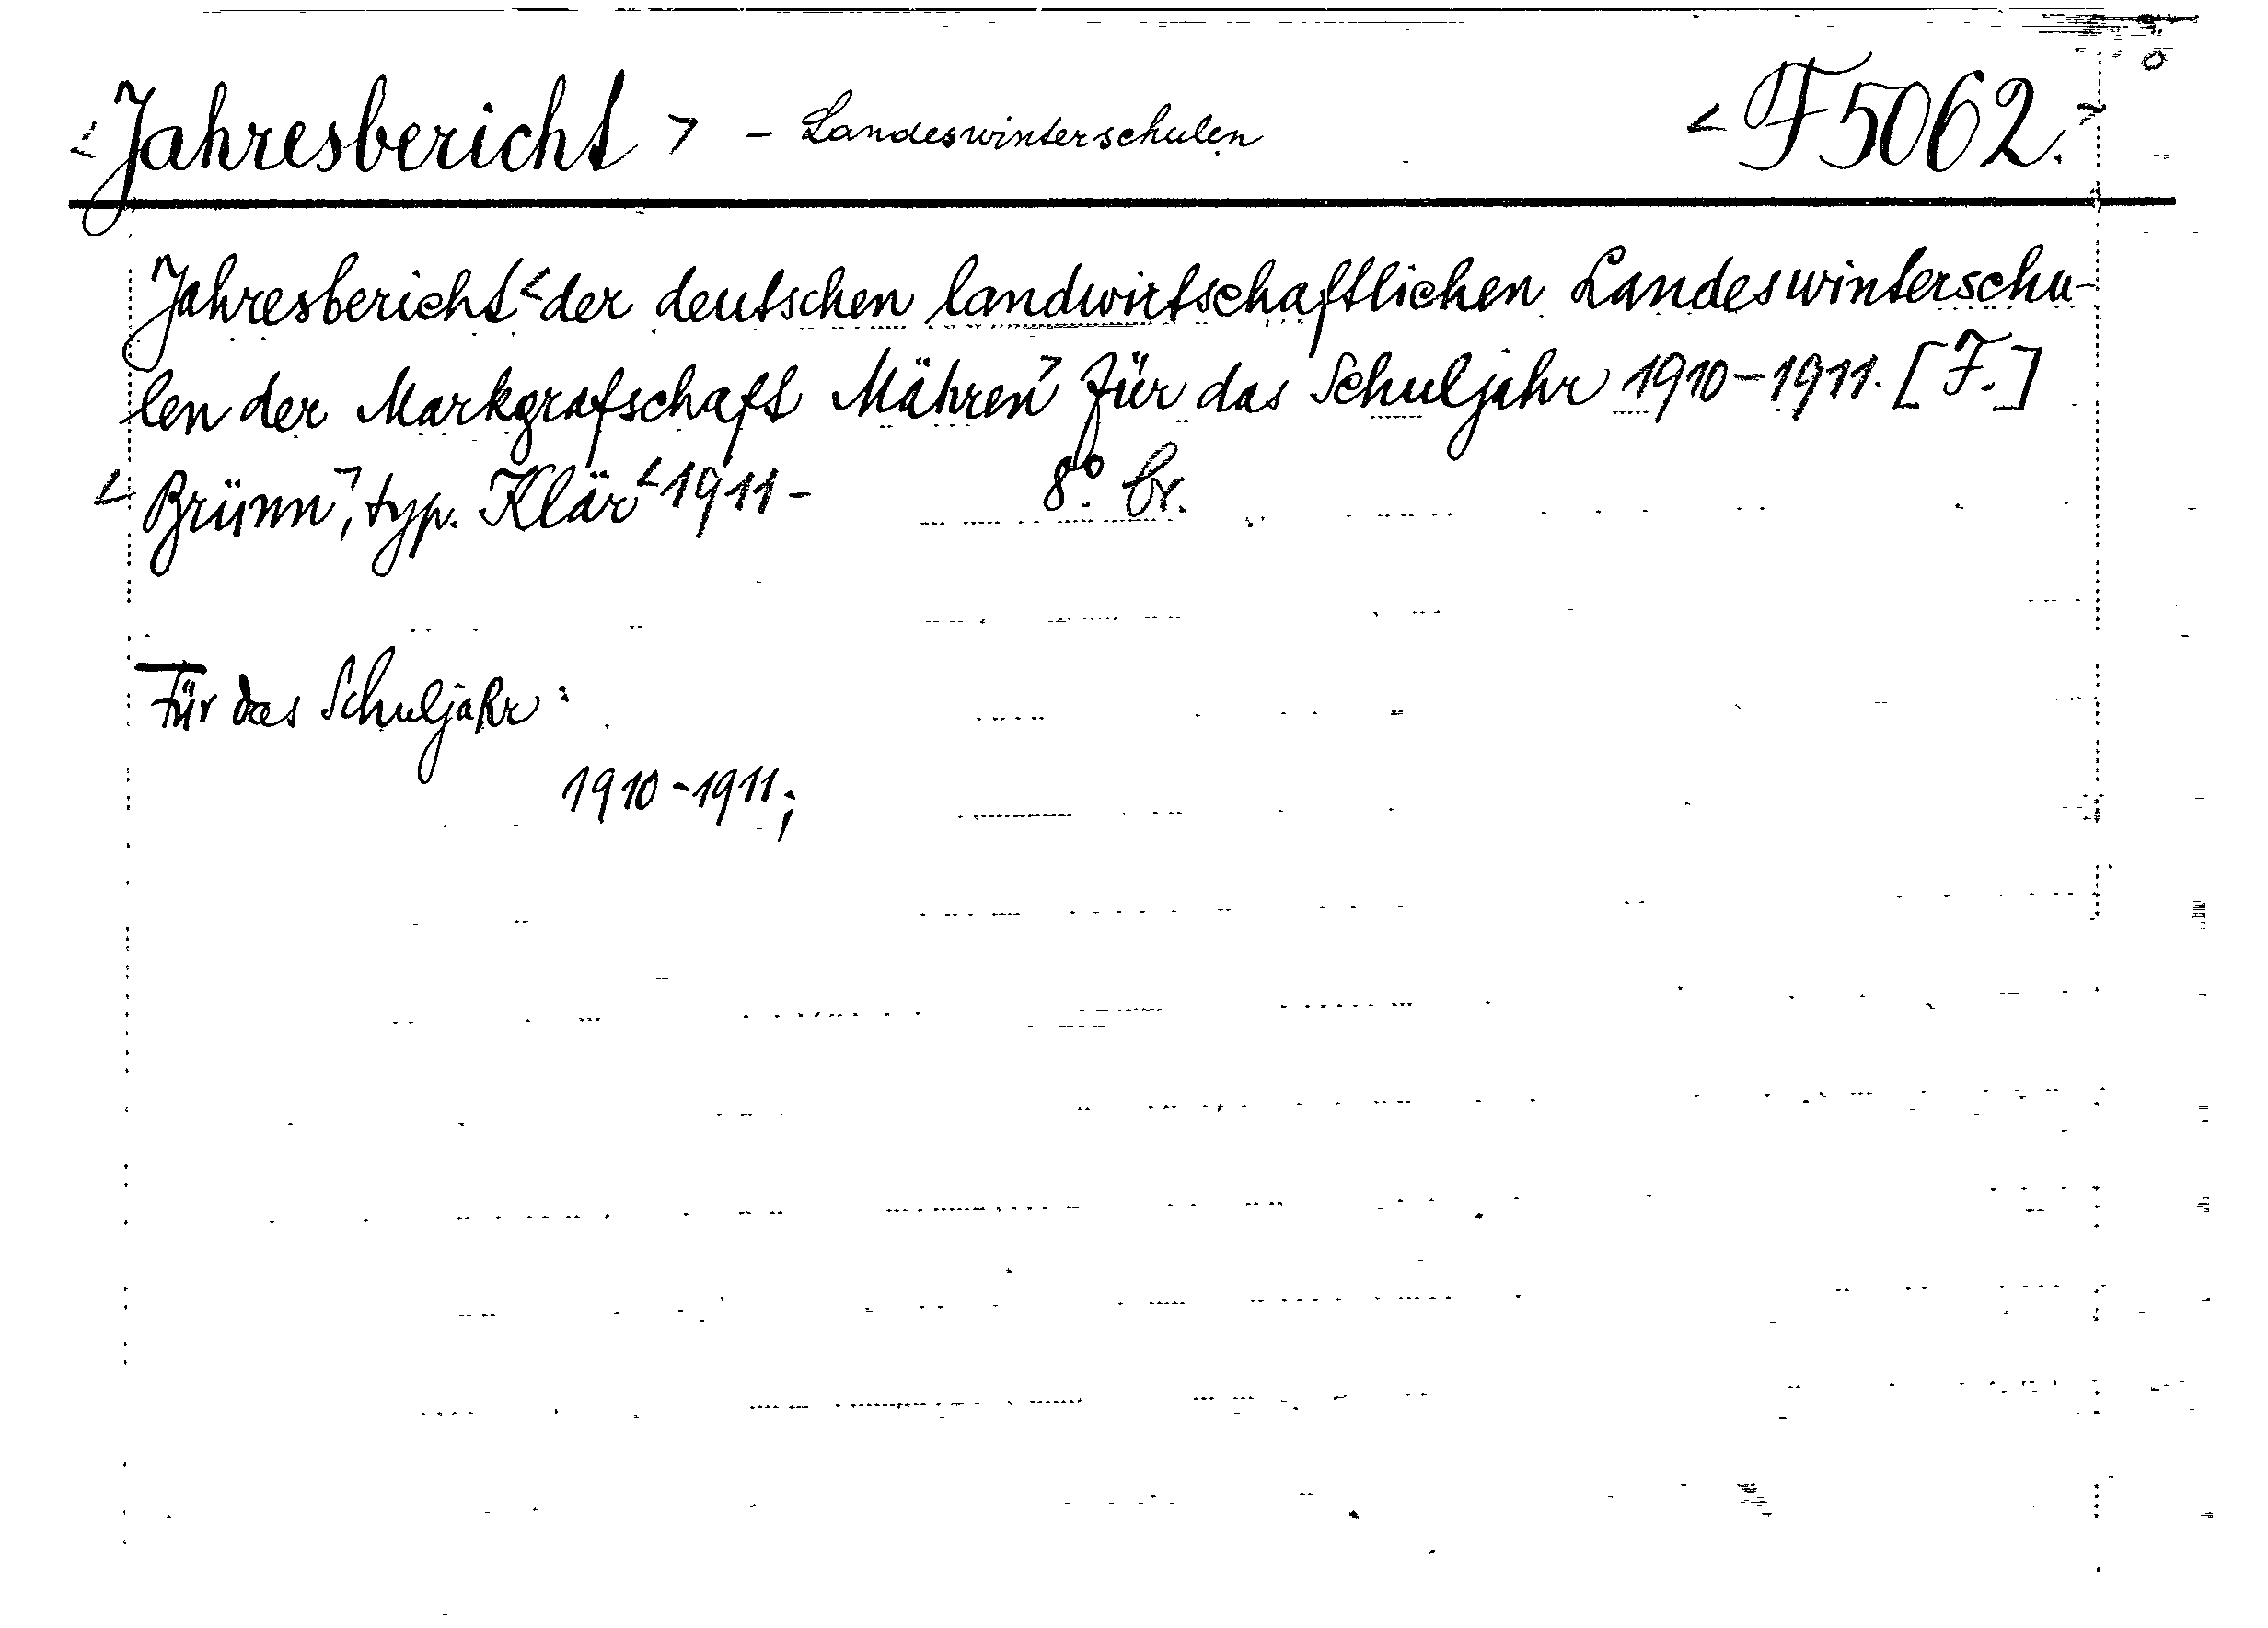 <Jahresbericht> - Landeswinterschulen <F 5062.>
Jahresbericht <der deutschen landwirtschaftlichen Landeswinterschu-
len der Markgrafschaft Mähren> für das Schuljahr 1910-1911. [F.]
<Brünn>, typ. Klär <1911- 8° br.
Für das Schuljahr:
1910-1911;